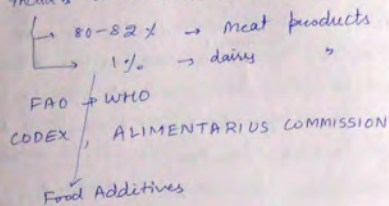 → 80-82 % → Meat products
→ 1% → dairy "
FAO → WHO
CODEX, ALIMENTARIUS COMMISSION
Food Additives